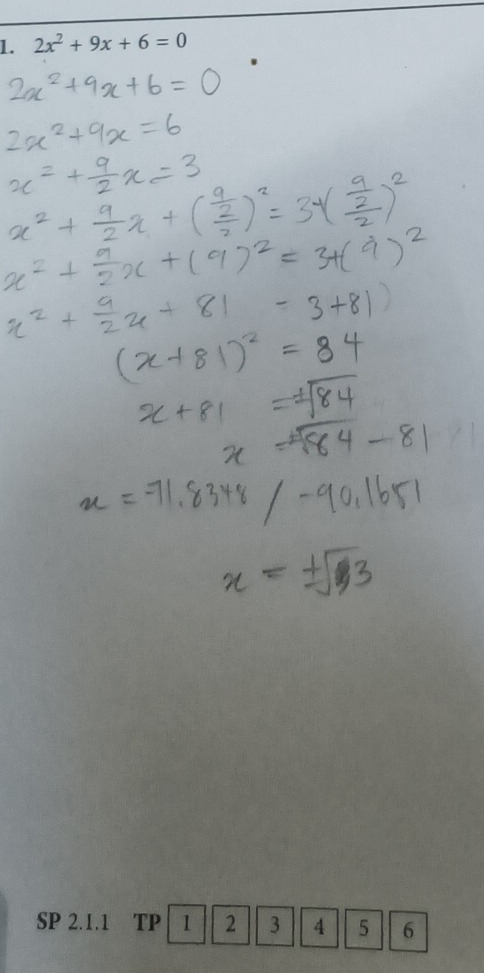 1. 2x² + 9x + 6 = 0
2x² + 9x + 6 = 0
2x² + 9x = 6
x² + 9/2 x = 3
x² + 9/2 x + (9/2/2)² = 3 + (9/2/2)²
x² + 9/2 x + (9)² = 3 + (9)²
x² + 9/2 x + 81 = 3 + 81)
(x + 81)² = 84
x + 81 = ±√84
x = ±√84 - 81
x = -71.8348 / -90.1651
x = ±√3
SP 2.1.1 TP 1 2 3 4 5 6